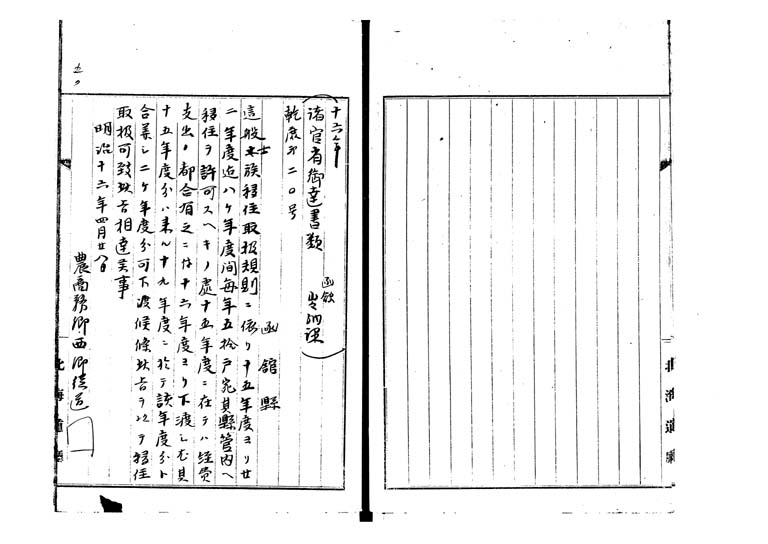 十六年
諸官省御達書類 函館 出納課
乾農第二〇号
函館縣
這般士族移住取扱規則ニ依リ十五年度ヨリ廿
二年度迄八ヶ年度間毎年五拾戸宛其縣管内ヘ
移住ヲ許可スヘキノ處十五年度ニ在テハ経費
支出ノ都合有之ニ付十六年度ヨリ下渡シ尤其
十五年度分ハ来ル十九年度ニ於テ該年度分ト
合算シ二ヶ年度分可下渡候條此旨ヲ以テ移住
取扱可致此旨相達候事
明治十六年四月廿八日
農商務卿西郷従道
北海道廳
北海道廳